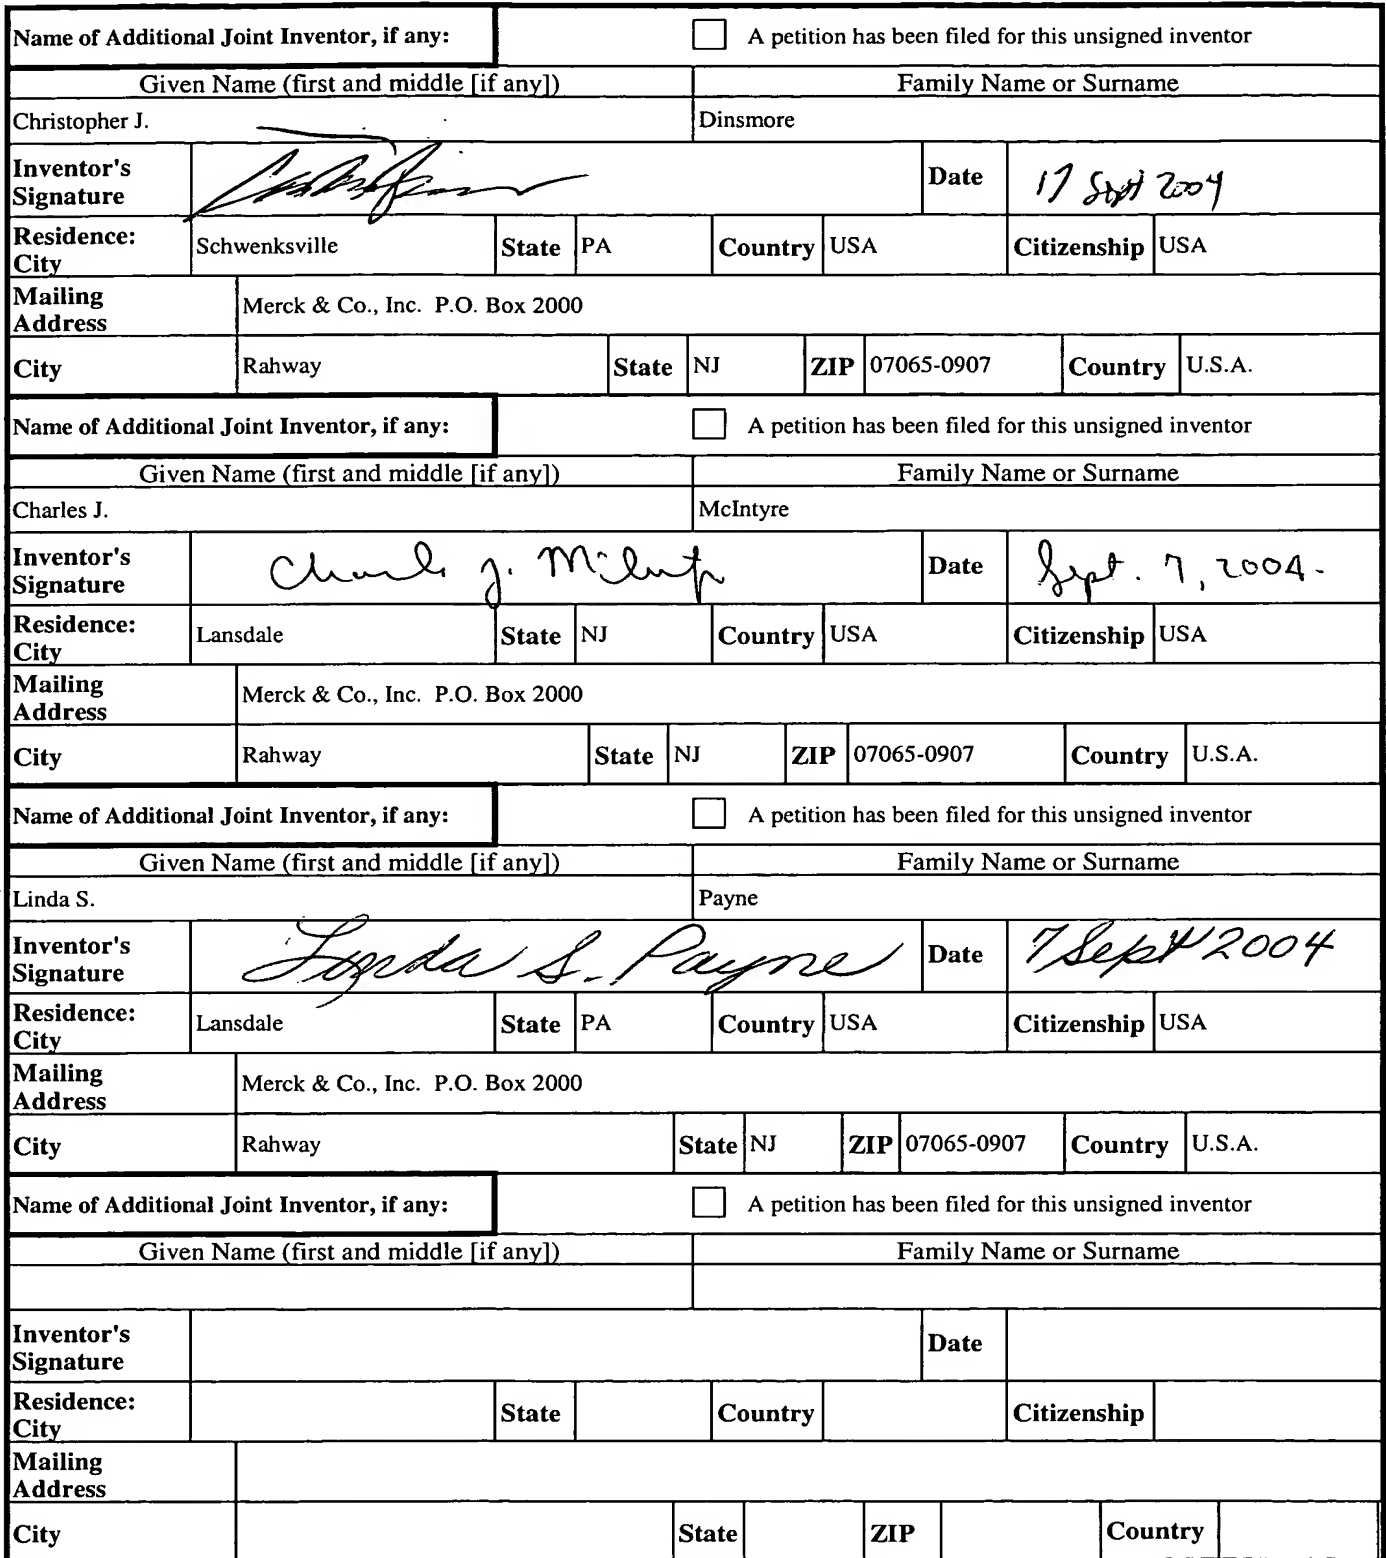 Name of Additional Joint Inventor, if any: A petition has been filed for this unsigned inventor
Given Name (first and middle [if any]) Family Name or Surname
Christopher J. Dinsmore
Inventor's Signature Date 17 Sept 2004
Residence: City Schwenksville State PA Country USA Citizenship USA
Mailing Address Merck & Co., Inc. P.O. Box 2000
City Rahway State NJ ZIP 07065-0907 Country U.S.A.
Name of Additional Joint Inventor, if any: A petition has been filed for this unsigned inventor
Given Name (first and middle [if any]) Family Name or Surname
Charles J. McIntyre
Inventor's Signature Charles J. McIntyre Date Sept. 7, 2004.
Residence: City Lansdale State NJ Country USA Citizenship USA
Mailing Address Merck & Co., Inc. P.O. Box 2000
City Rahway State NJ ZIP 07065-0907 Country U.S.A.
Name of Additional Joint Inventor, if any: A petition has been filed for this unsigned inventor
Given Name (first and middle [if any]) Family Name or Surname
Linda S. Payne
Inventor's Signature Linda S. Payne Date 7 Sept 2004
Residence: City Lansdale State PA Country USA Citizenship USA
Mailing Address Merck & Co., Inc. P.O. Box 2000
City Rahway State NJ ZIP 07065-0907 Country U.S.A.
Name of Additional Joint Inventor, if any: A petition has been filed for this unsigned inventor
Given Name (first and middle [if any]) Family Name or Surname
Inventor's Signature Date
Residence: City State Country Citizenship
Mailing Address
City State ZIP Country